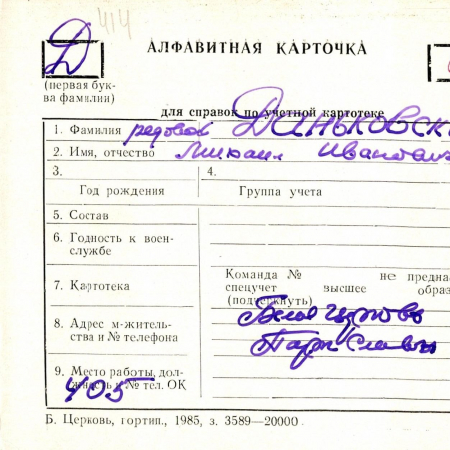 414
Д
АЛФАВИТНАЯ КАРТОЧКА
(первая бук-
ва фамилии)
для справок по учетной картотеке
1. Фамилия рядовой Даньковск
2. Имя, отчество Михаил Иванович
3.
Год рождения
4.
Группа учета
5. Состав
6. Годность к воен-
службе
7. Картотека
Команда № не предна
спецучет высшее образ
(подчеркнуть)
8. Адрес м-житель-
ства и № телефона
Белая Церковь
Парк Славы
9. Место работы, дол-
жность и № тел. ОК
405
Б. Церковь, гортип., 1985, з. 3589—20000.